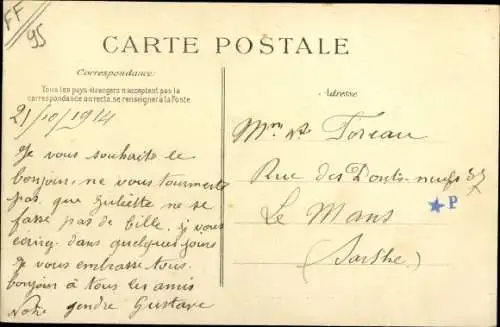 FF
95
CARTE POSTALE
Correspondance
Tous les pays étrangers n'acceptent pas la
correspondance au recto, se renseigner à la Poste
Adresse
21/10/1914
Je vous souhaite le
bonjour, ne vous tourmente
pas, que Juliette ne se
fasse pas de bille, je vous
écrirai dans quelques jours
Je vous embrasse tous
bonjour à tous les amis
Votre gendre Gustave
Mme Vve Toreau
Rue des Ponts-neufs 37
Le Mans
(Sarthe)
P